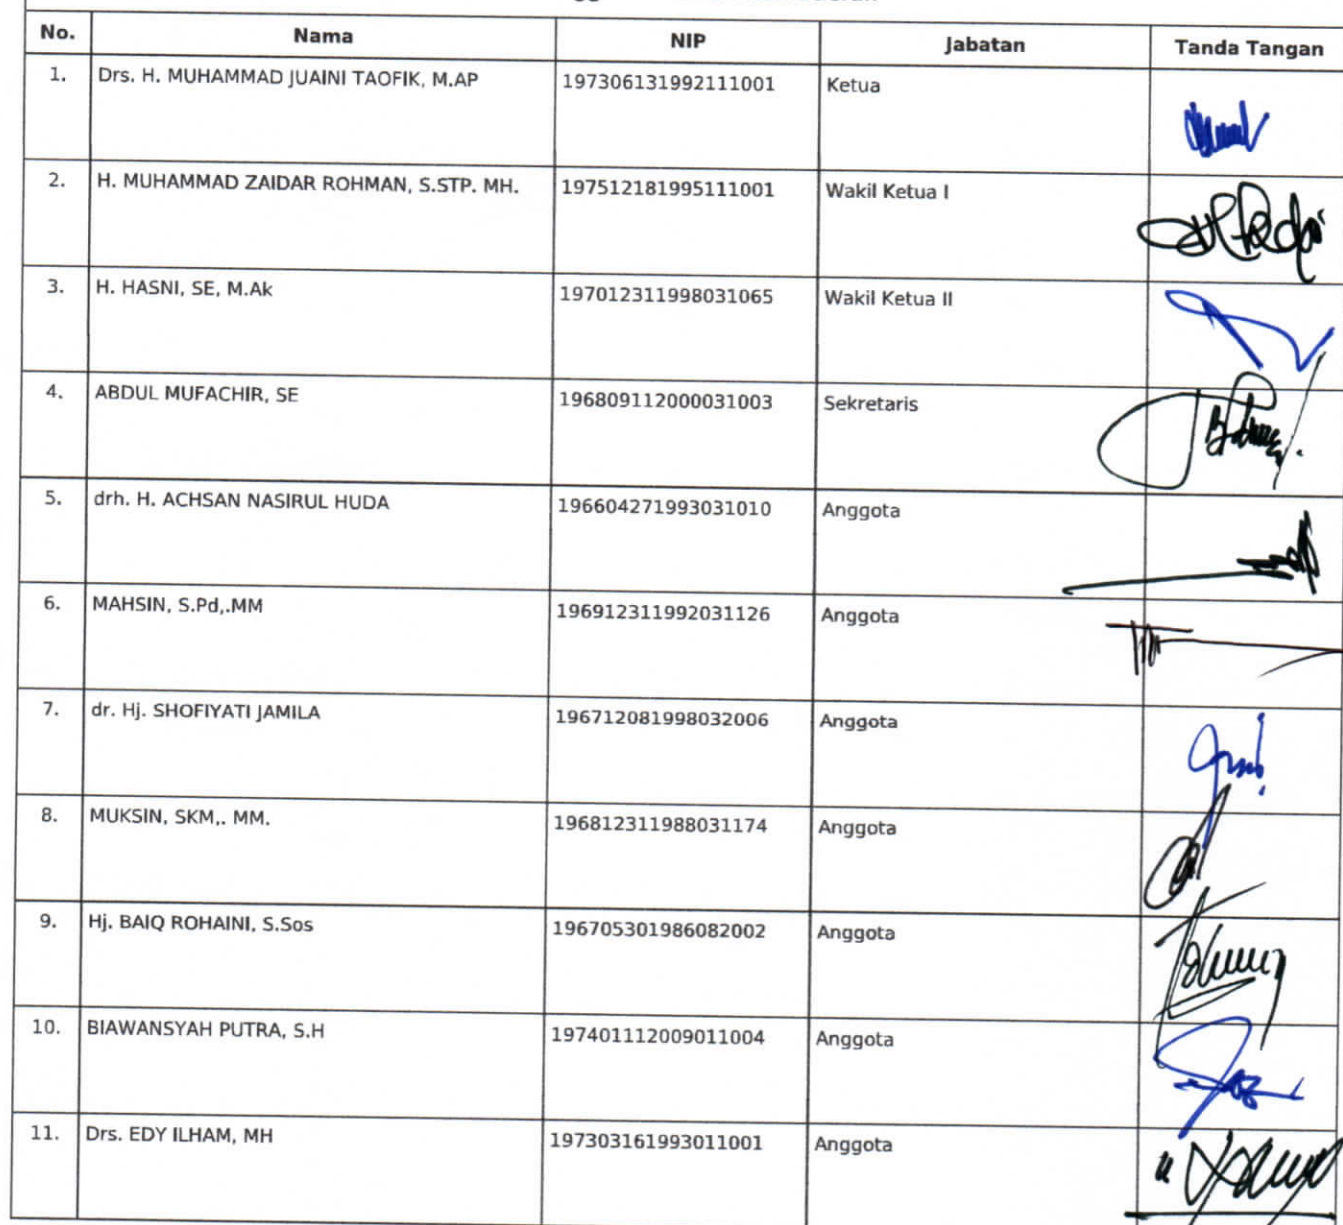 No. Nama NIP Jabatan Tanda Tangan
1. Drs. H. MUHAMMAD JUAINI TAOFIK, M.AP 197306131992111001 Ketua
2. H. MUHAMMAD ZAIDAR ROHMAN, S.STP. MH. 197512181995111001 Wakil Ketua I
3. H. HASNI, SE, M.Ak 197012311998031065 Wakil Ketua II
4. ABDUL MUFACHIR, SE 196809112000031003 Sekretaris
5. drh. H. ACHSAN NASIRUL HUDA 196604271993031010 Anggota
6. MAHSIN, S.Pd,.MM 196912311992031126 Anggota
7. dr. Hj. SHOFIYATI JAMILA 196712081998032006 Anggota
8. MUKSIN, SKM,. MM. 196812311988031174 Anggota
9. Hj. BAIQ ROHAINI, S.Sos 196705301986082002 Anggota
10. BIAWANSYAH PUTRA, S.H 197401112009011004 Anggota
11. Drs. EDY ILHAM, MH 197303161993011001 Anggota